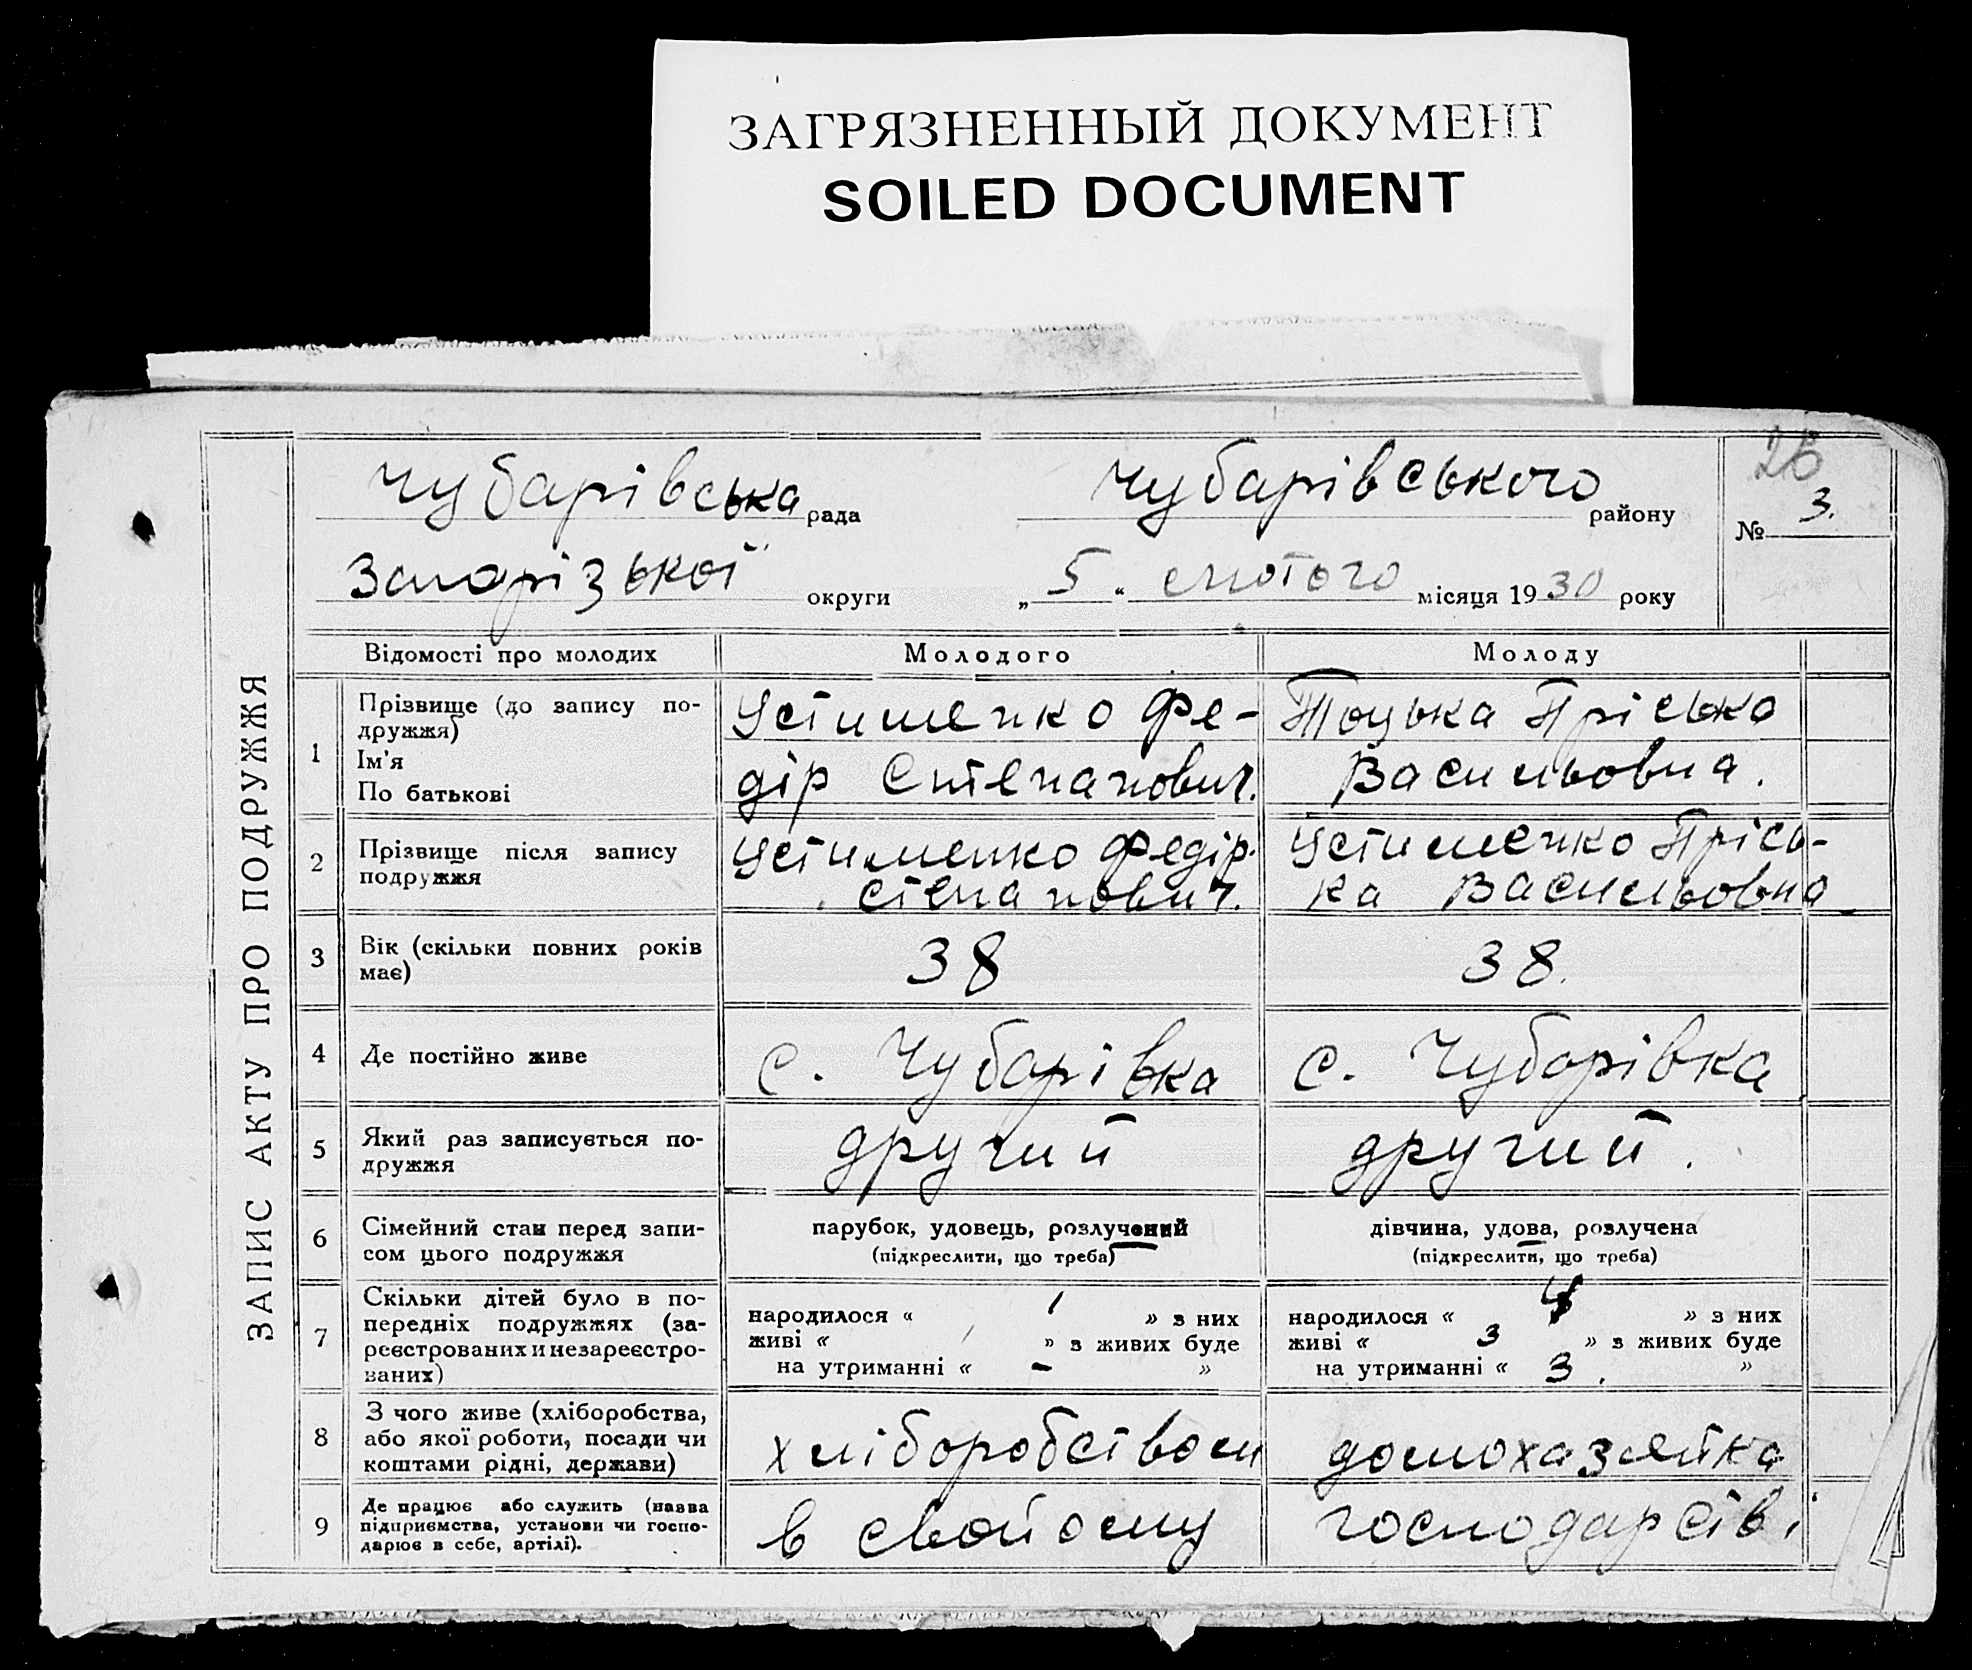 ЗАГРЯЗНЕННЫЙ ДОКУМЕНТ
SOILED DOCUMENT
26
Чубарівська рада Чубарівського району № 3.
Запорізької округи „5“ лютого місяця 1930 року
ЗАПИС АКТУ ПРО ПОДРУЖЖЯ
Відомості про молодих Молодого Молоду
1 Прізвище (до запису по-
дружжя)
Ім'я
По батькові
Устименко Фе-
дір Степанович.
Тоцька Пріська
Васильовна.
2 Прізвище після запису
подружжя
Устименко Федір
Степанович.
Устименко Прісь-
ка Васильовна
3 Вік (скільки повних років
має)
38
38.
4 Де постійно живе
с. Чубарівка
с. Чубарівка
5 Який раз записується по-
дружжя
другий
другий.
6 Сімейний стан перед запи-
сом цього подружжя
парубок, удовець, розлучений
(підкреслити, що треба)
дівчина, удова, розлучена
(підкреслити, що треба)
7 Скільки дітей було в по-
передніх подружжях (за-
реєстрованих и незареєстро-
ваних)
народилося « 1 » з них
живі « 1 » з живих буде
на утриманні « - »
народилося « 4 » з них
живі « 3 » з живих буде
на утриманні « 3. »
8 З чого живе (хліборобства,
або якої роботи, посади чи
коштами рідні, держави)
хліборобством
домохазяйка
9 Де працює або служить (назва
підприємства, установи чи госпо-
дарює в себе, артілі).
в свойому
господарстві